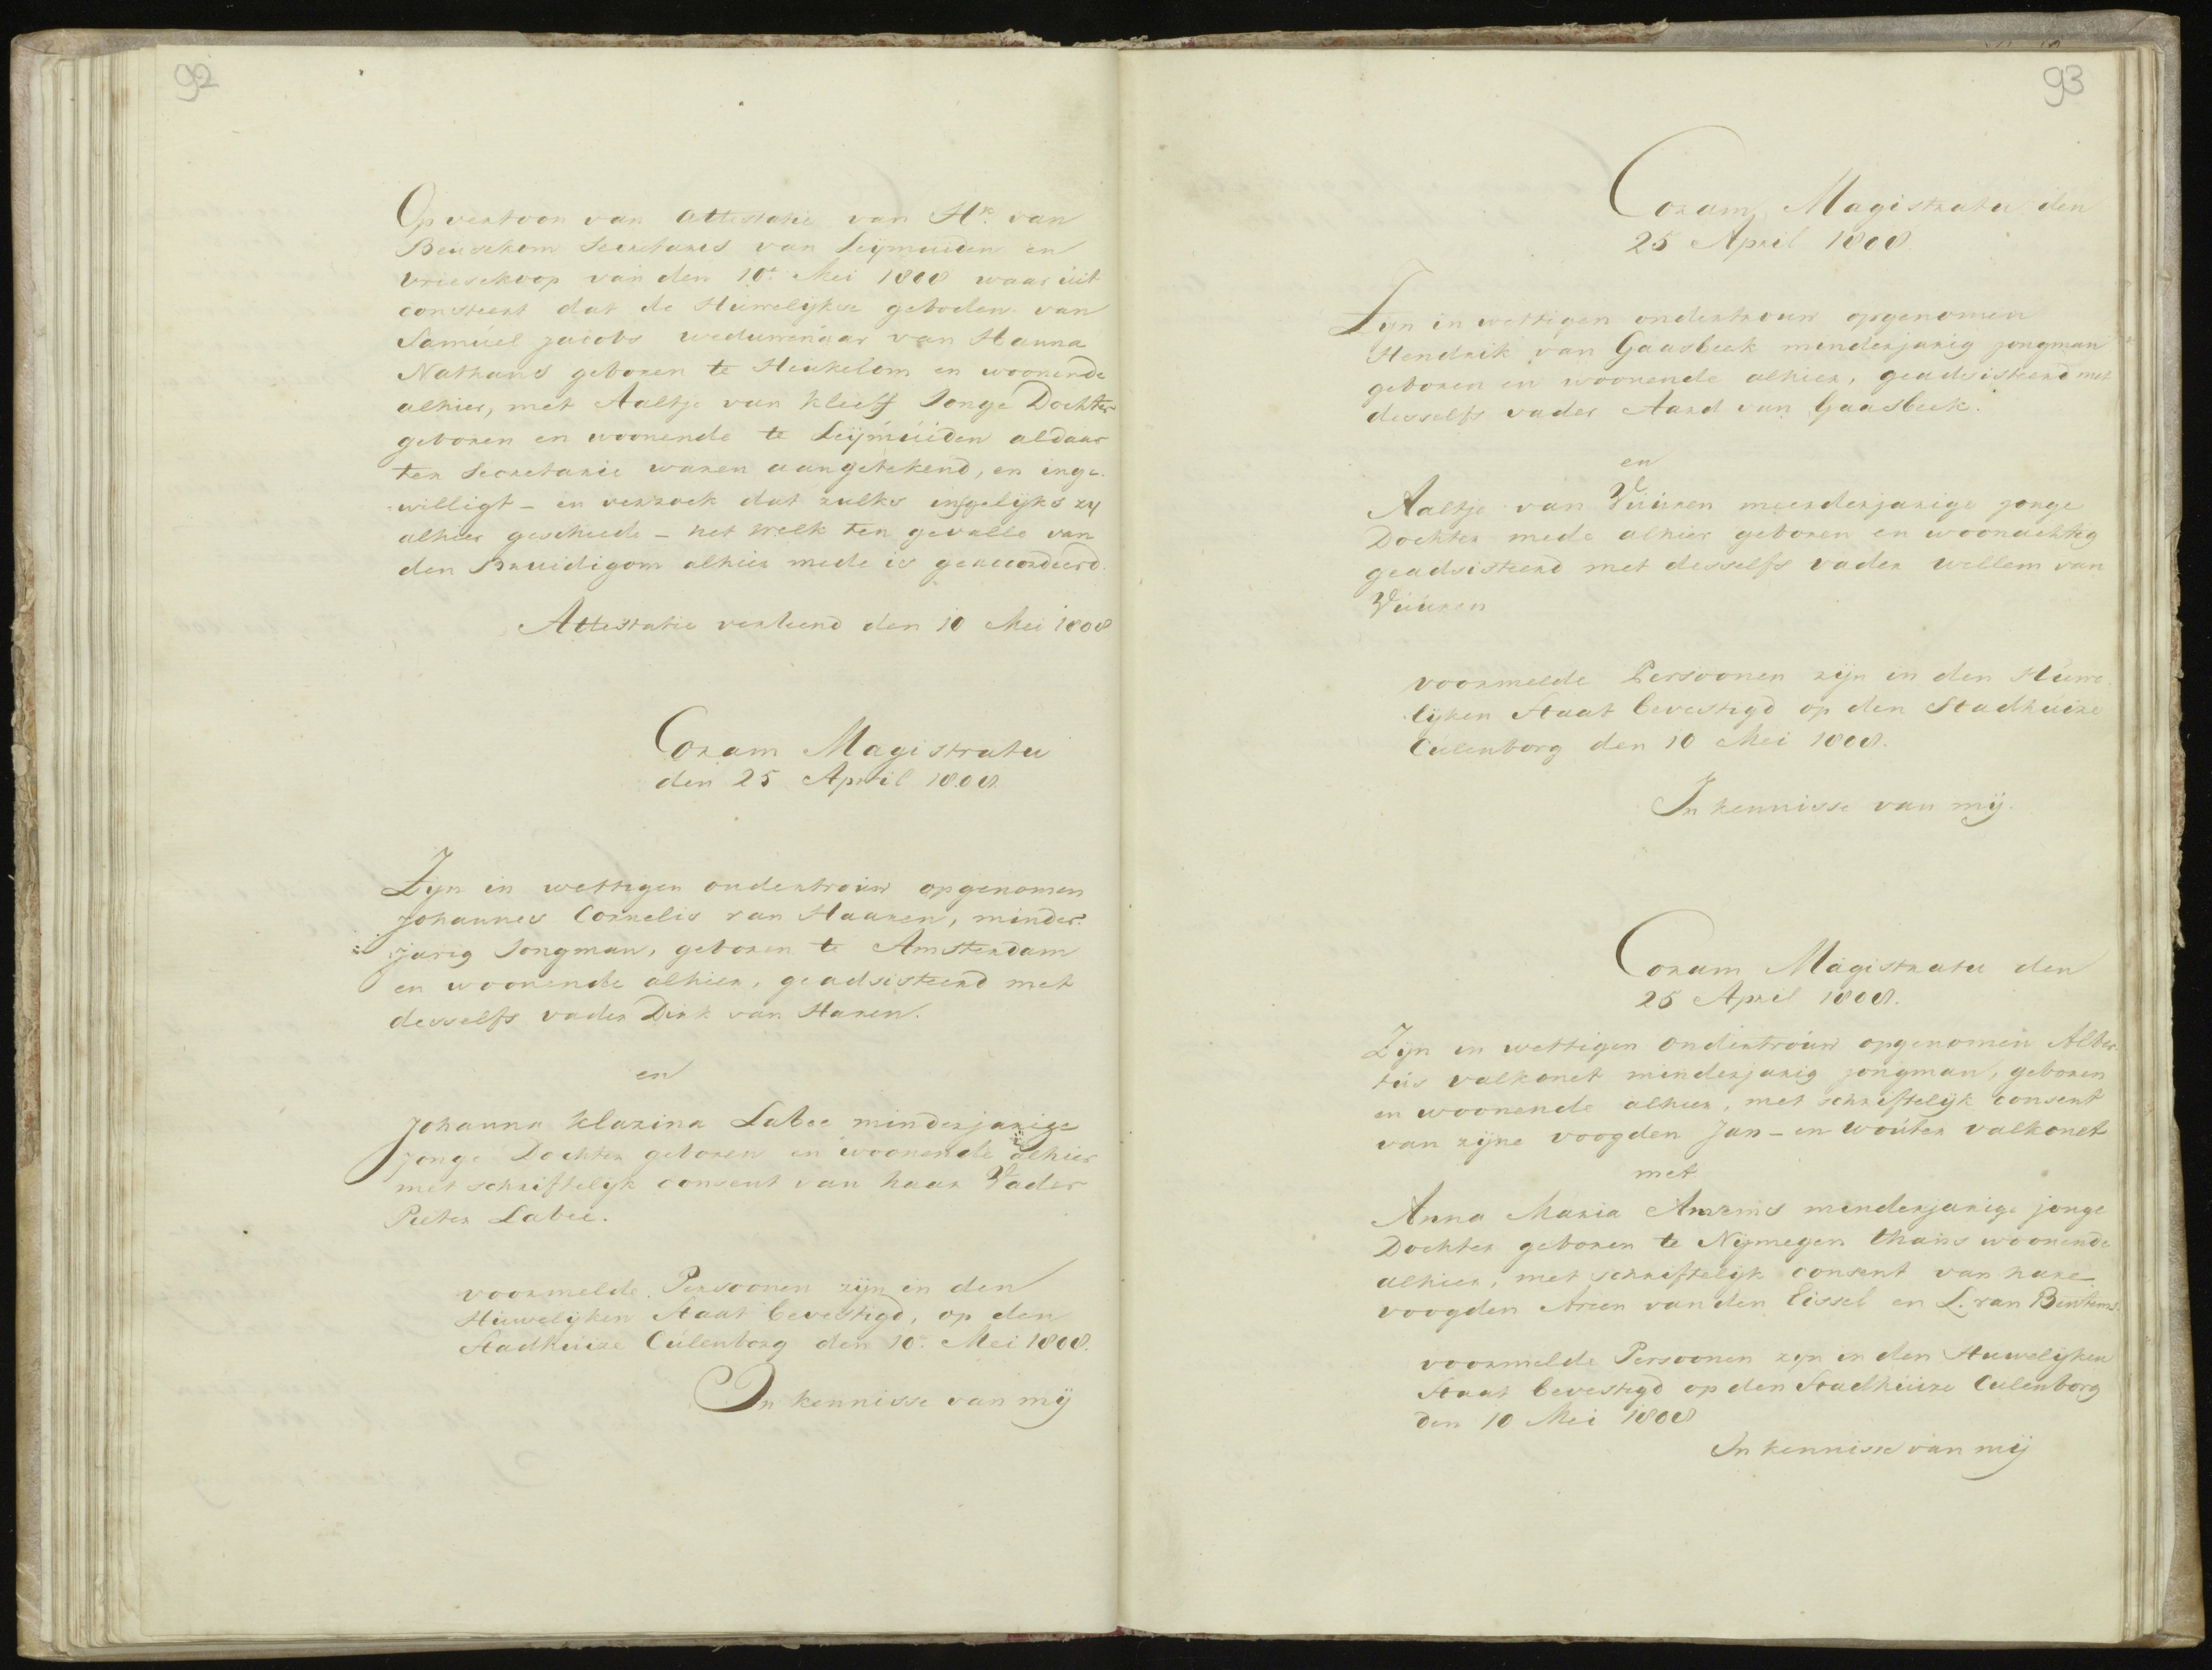 92
Op vertoon van Attestatie van Hr. van
Beusekom Secretaris van Leijmuiden en
Vriesekoop van den 10e Mei 1808 waar uit
consteert dat de Huwelijkse geboden van
Samúel Jacobs weduwenaar van Hanna
Nathans geboren te Heukelom en woonende
alhier, met Aaltje van Kleeff Jonge Dochter
geboren en woonende te Leijmúiden aldaar
ter Secretarie waren aangetekend, en inge
willigt - en verzoek dat zulks insgelijks zy
alhier geschiede - het welk ten gevalle van
den Bruidigom alhier mede is geaccordeerd.
Attestatie verleend den 10 Mei 1808
Coram Magistratu
den 25 April 1808.
Zyn in wettigen ondertrouw opgenomen
Johannes Cornelis van Haaren, minder
jarig Jongman, geboren te Amsterdam
en woonende alhier, geadsisteerd met
desselfs vader Dirk van Haren.
en
Johanna Klazina Labee minderjarige
jonge Dochter geboren en woonende alhier
met schriftelijk consent van haar Vader
Pieter Labee.
voormelde Persoonen zijn in den
Húwelijken Staat bevestigd, op den
Stadhúize Cúlenborg den 10e Mei 1808.
In kennisse van mij
93
Coram Magistratu den
25 April 1808.
Zyn in wettigen ondertrouw opgenomen
Hendrik van Gaasbeek minderjarig jongman
geboren en woonende alhier, geadsisteerd met
desselfs vader Aard van Gaasbeek.
en
Aaltje van Vúúren meerderjarige jonge
Dochter mede alhier geboren en woonachtig
geadsisteerd met desselfs vader Willem van
Vúúren
voormelde Persoonen zijn in den Húwe
lijken Staat bevestigd op den Stadhúize
Cúlenborg den 10 Mei 1808.
In kennisse van mij.
Coram Magistratu den
25 April 1808.
Zyn in wettigen ondertroúw opgenomen Alber
tús valkonet minderjarig jongman, geboren
en woonende alhier, met schriftelijk consent
van zijne voogden Jan - en Woúter valkonet
met
Anna Maria minderjarige jonge
Dochter geboren te Nijmegen thans woonende
alhier, met schriftelijk consent van hare
voogden Arien van den Eissel en L. van
voormelde Persoonen zyn in den Huwelijken
Staat bevestigd op den Stadhúize Culenborg
den 10 Mei 1808
In kennisse van mij